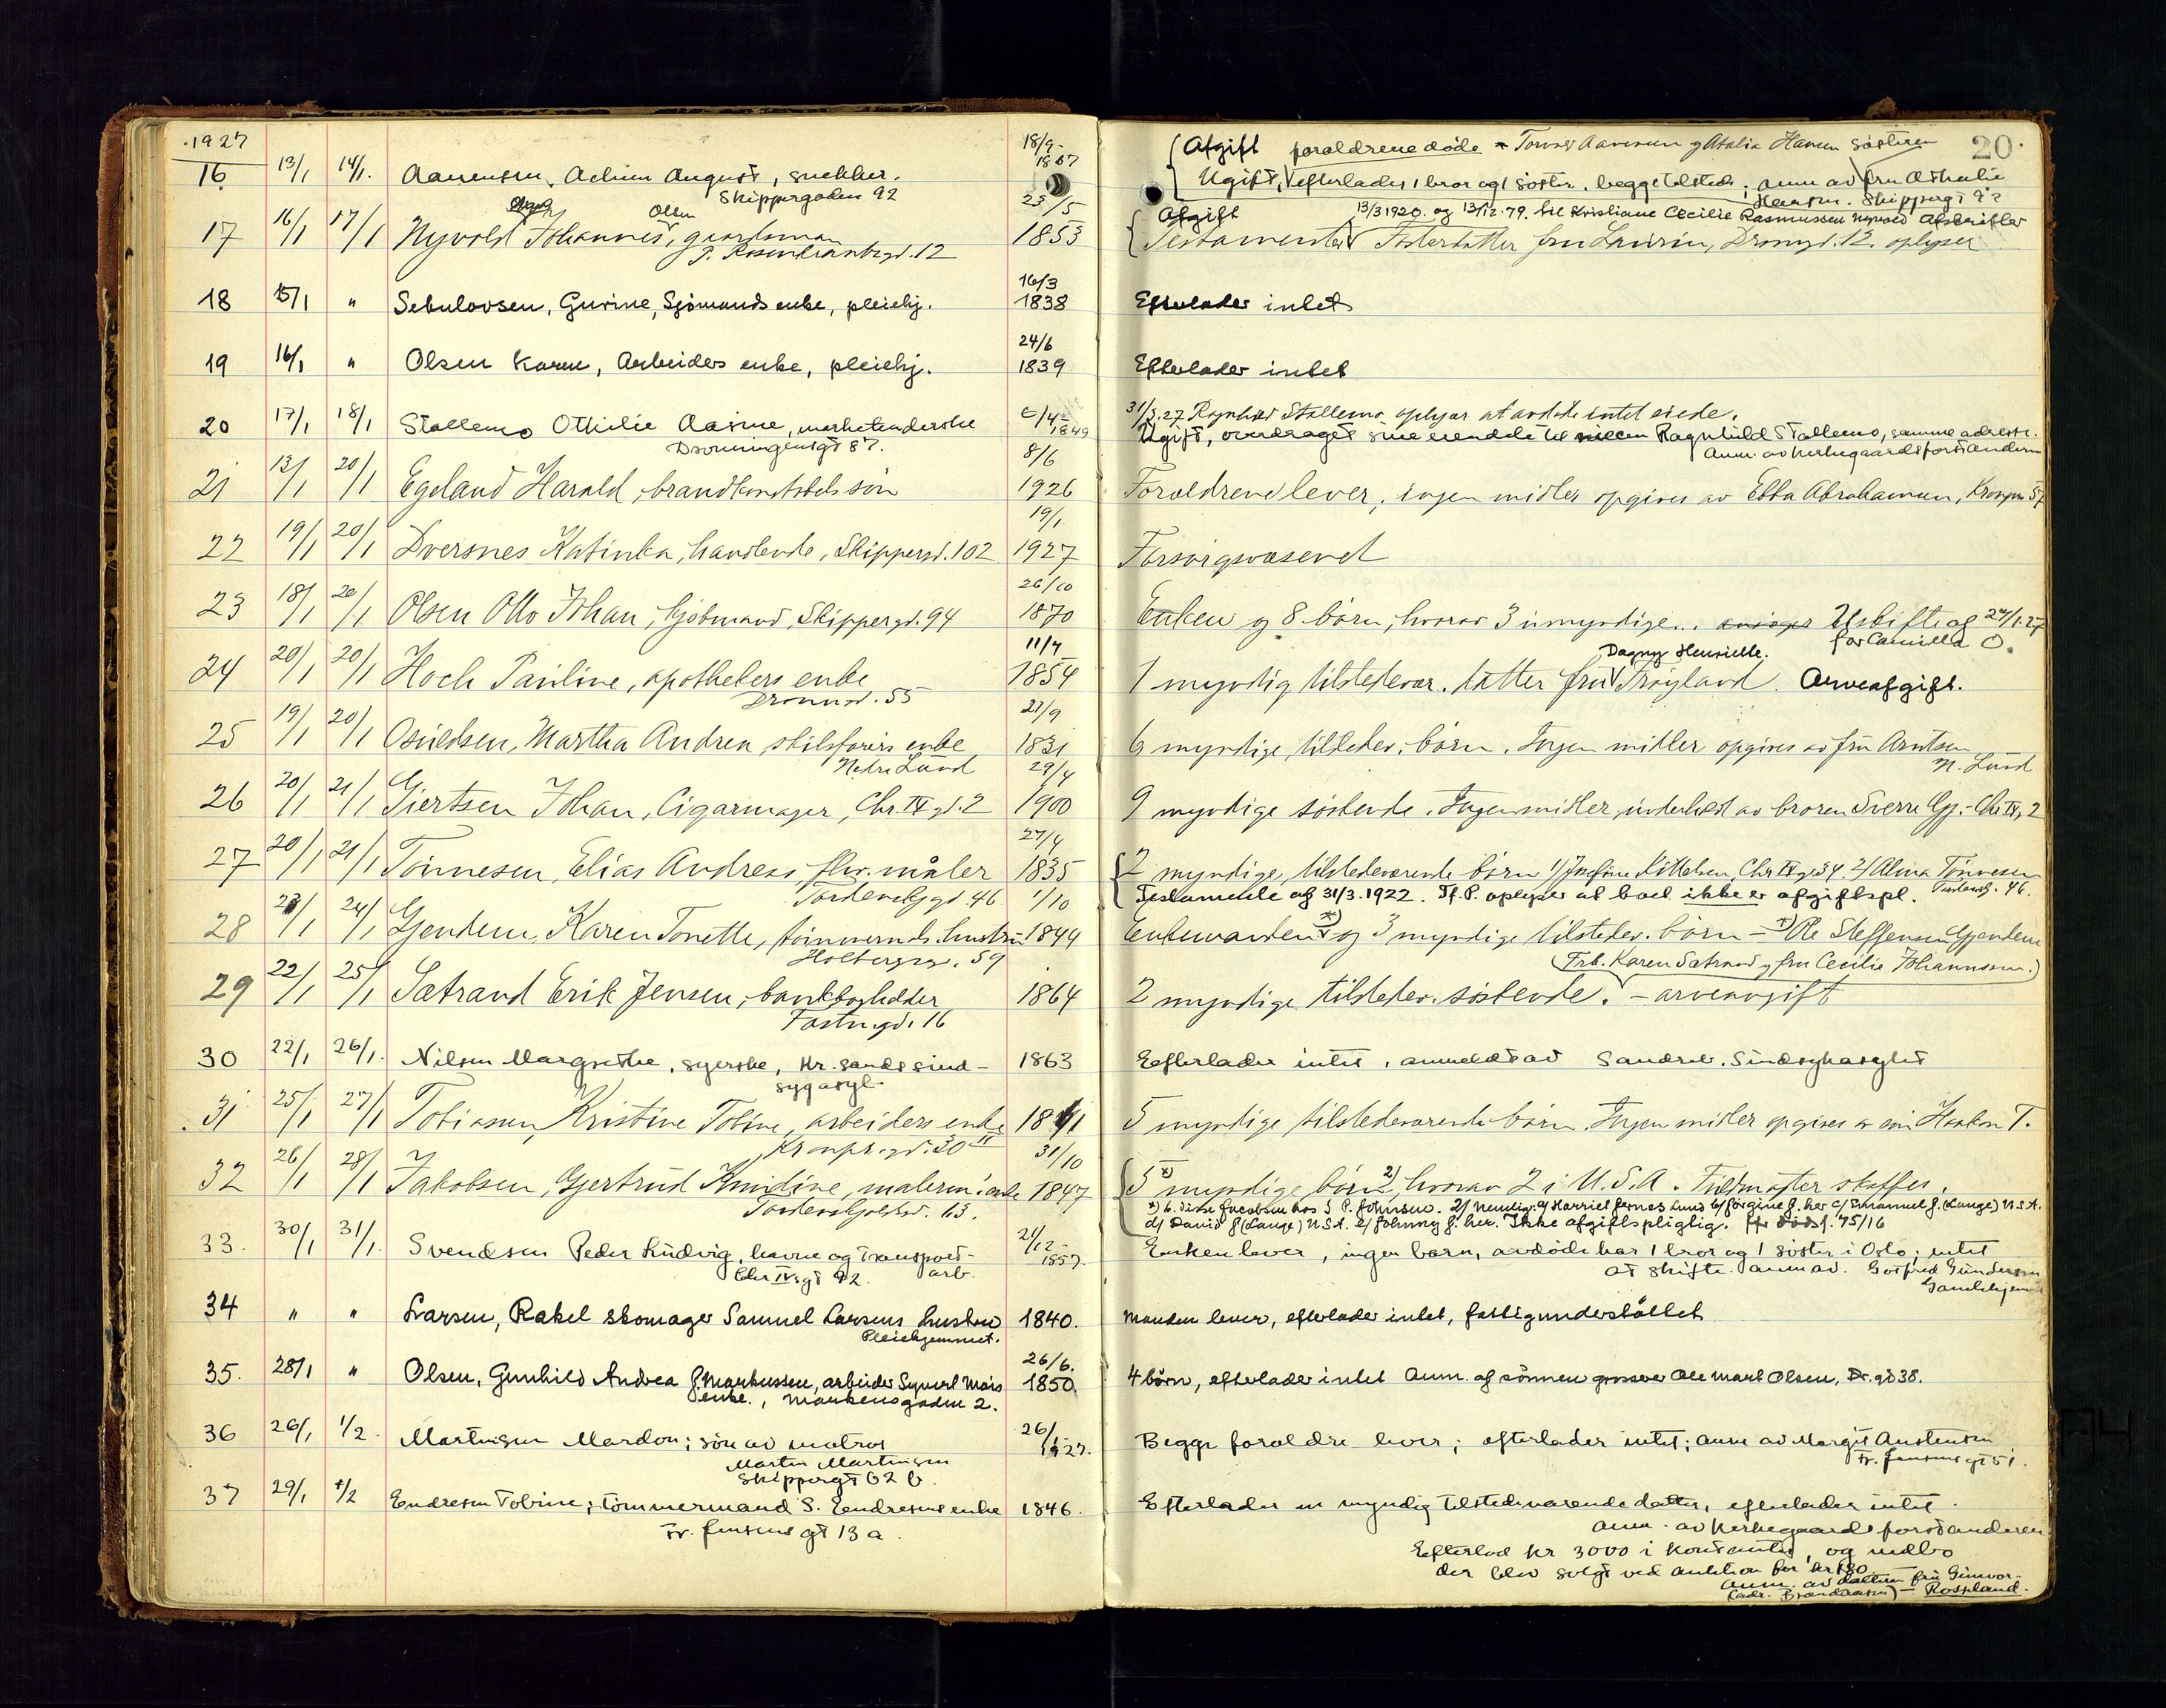 1927
20.
18/9-
1867
16 13/1 14/1. Aanensen, Achim August, snekker.
Skippergaden 92
Afgift foraldrene døde
Ugift, efterlader 1 bror og 1 søster, begge tilstede; anm av fru Athalie
Hansen. Skippergt 92
25/5
17 16/1 17/1 Nyvold Johannes, gaardsman 1853
Olsen
P. Rosenkrantzgd. 12
Afgift 13/3 1920. og 13/12.79. til Kristiane Cecilie Rasmussen Nyvold Afskrifter
Testamenter Fosterdatter fru Laurin, Dronngd. 12. oplyser
16/3
18 15/1 " Sebulovsen, Gurine, Sjømands enke, pleiehj. 1838 Efterlader intet
24/6
19 16/1 " Olsen Karen, Arbeiders enke, pleiehj. 1839 Efterlader intet
31/3.27 Ragnhild Stallemo oplyser at avdøde intet eiede.
20 17/1 18/1 Stallemo Othilie Aasine, marketenderske 6/4- 1849
Dronningensgt 87.
Ugift, overdraget sine eiendele til niecen Ragnhild Stallemo, samme adresse.
Anm. av Kirkegaardsforstanderen
8/6
21 13/1 20/1 Egeland Harald, brandkonstabels søn 1926 Forældrene lever, ingen midler opgives av Ebba Abrahamsen, Kronpr. 57
19/1
22 19/1 20/1 Dversnes Katinka, handlende, Skippergd. 102 1927 Forsørgsvæsenet
26/10
23 18/1 20/1 Olsen Otto Johan, kjøbmand, Skippergd. 94 1870 Enken og 8 børn, hvorav 3 umyndige. Uskifteag 24/1.27
for Camilla O.
11/7
24 20/1 20/1 Hoch Pauline, apothekers enke 1854
Dronngd. 55
Dagny Henriette.
1 myndig tilstedevær. datter fru Frøyland. Arveafgift.
21/9
25 19/1 20/1 Osuldsen, Martha Andrea skibsførers enke 1831
Nedre Lund
6 myndige, tilstedev. børn. Ingen midler opgives av fru Arntsen
N. Lund
29/4
26 20/1 21/1 Gjertsen Johan, Cigarmager, Chr. IV gd. 2 1900 9 myndige søskende. Ingen midler, underholdt av broren Sverre Gj. - Chr IV, 2
27/4
27 20/1 21/1 Tønnesen, Elias Andreas, fhv. måler 1835
Tordenskj. gd. 46
2 myndige, tilstedeværende børn 1/ Josefine Kittelsen, Chr IV gd 54 2/ Alma Tønnesen
Tordensk. 46.
Testamente af 31/3.1922. Tf. P. oplyser at boet ikke er afgiftspl.
1/10
28 23/1 24/1 Gjendem, Karen Tonette, tømmermds. hustru 1844
Holbergsg. 59
Enkemanden x) og 3 myndige tilstedev. børn - x) Ole Steffensen Gjendem
29 22/1 25/1 Sætrand Erik Jensen, bankbogholder 1864
Festn.gd. 16
(Frk. Karen Sætrand og fru Cecilie Johannessen.)
2 myndige tilstedev. søskende. - arveavgift
30 22/1 26/1. Nilsen Margrethe, syerske, Kr.sands sind-
sygasyl. 1863 Efterlader intet, anmeldt av Sandrev. Sindsykasylet
31 25/1 27/1 Tobiassen, Kristine Tobine, arbeiders enke 1841
Kronpr. gd. 30 II
5 myndige tilstedeværende børn. Ingen midler opgives av søn Haakon T.
31/10
32 26/1 28/1 Jakobsen, Gjertrud Knudine, malerm. enke 1847
Tordenskjoldsgd. 63.
5 myndige børn 2), hvorav 2 i U.S.A. Fuldmagter skaffes.
d/ David J (Lange) U.S.A. e/ Johnny J. her. Ikke afgiftspligtig.
33. 30/1 31/1. Svendsen Peder Ludvig, havne og transport-
arb. 21/12- 1857.
Chr IVs gt 92.
Enken lever, ingen barn, avdøde har 1 bror og 1 søster i Oslo; intet
at skifte. anm av. Gotfred Gundersen
Gamlehjem
34 " " Larsen, Rakel skomager Samuel Larsens hustru 1840.
Pleiehjemmet.
Manden lever, efterlader intet, fattigunderstøttet
26/6.
35. 28/1 " Olsen, Gunhild Andrea f. Markussen, arbeider Syvert Mais 1850.
enke., Markensgaden 2.
4 børn, efterlader intet Anm. af sønnen grosserer Ole Mart Olsen, Dr. gd 38.
36 26/1 1/2. Martinsen Mardon; søn av matros 26/1- 1927.
Martin Martinsen
Skippergt 62 b.
Begge foraldre lever; efterlader intet; anm av Margit Austensen
Tr. Jensens gt 51.
37 29/1 1/2 Endresen Tobine; tømmermand S. Endresens enke 1846.
Tr. Jensens gt 13 a.
Efterlader en myndig tilstedeværende datter, efterlader intet.
anm. av Kirkegaardsforstanderen
Efterlod kr 3000 i kontanter, og indbo
der blev solgt ved auktion for kr 180
anm. av datteren fru Gunvor
Rossland.